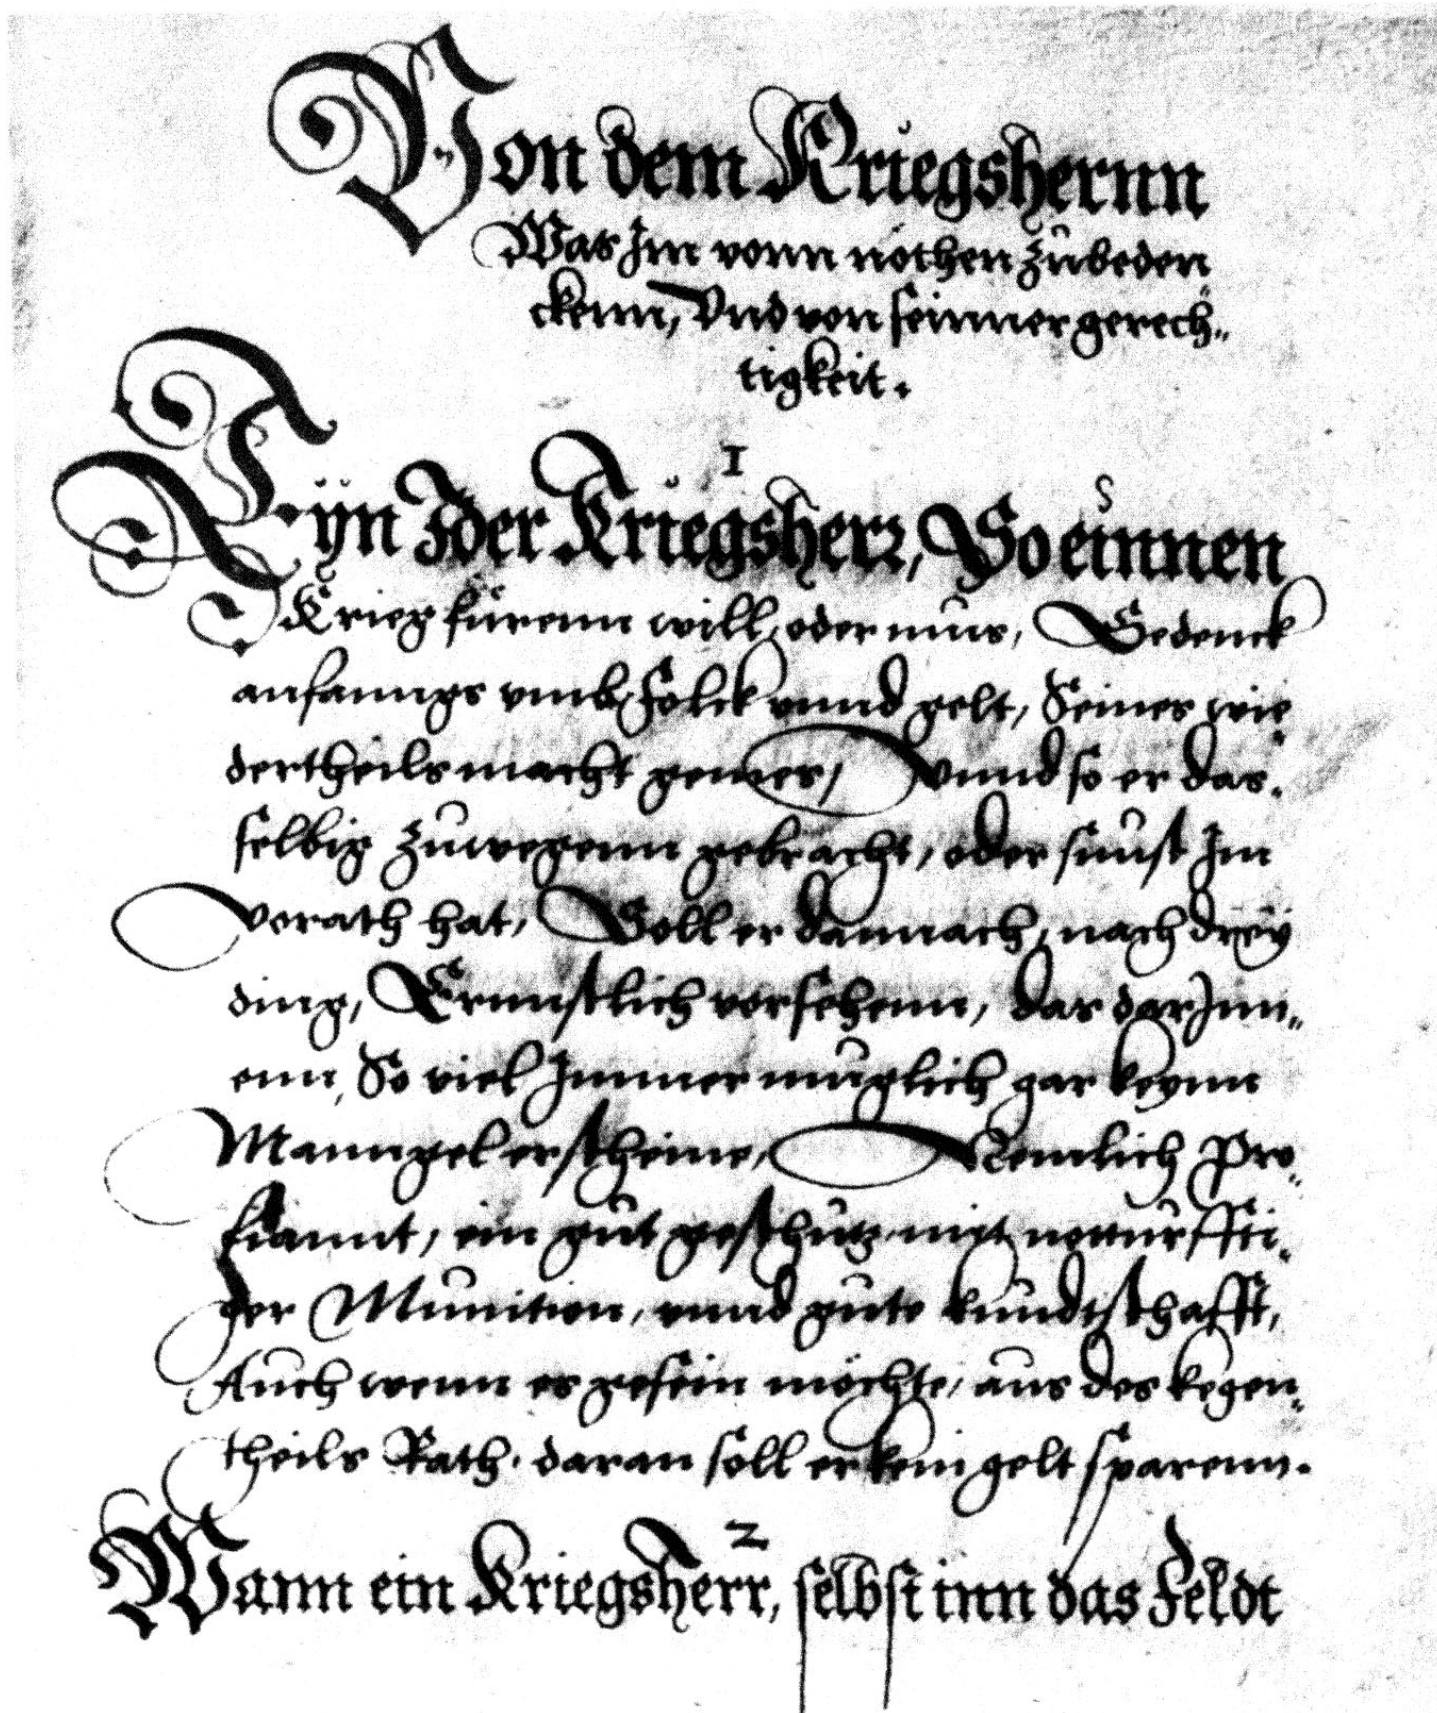 Von dem Kriegshernn
Was Im vonn nöthen zubeden
ckenn, Vnd von seinner gerech„
tigkeit.
1
Eyn Jder Kriegsherr, So einnen
Krieg fürenn will, oder mus, Gedenck
anfanngs vmb Folck vnnd gelt, Seines wie
dertheils macht gemes, Vnnd so er das„
selbig zuwegenn gebracht, oder sunst Im
vorath hat, Soll er dannach, nach drey
ding, Ernnstlich vorsehenn, das darInn„
enn, So viel Immer muglich gar keynn
Manngel erscheine, Nemlich Pro„
fiannt, ein gut geschutz mit notturffti„
ger Munition, vnnd gute kundtschafft,
Auch wenn es gesein möchte, aus des kegen„
theils Rath, daran soll er kein gelt sparenn.
2
Wann ein Kriegsherr, selbst inn das Feldt